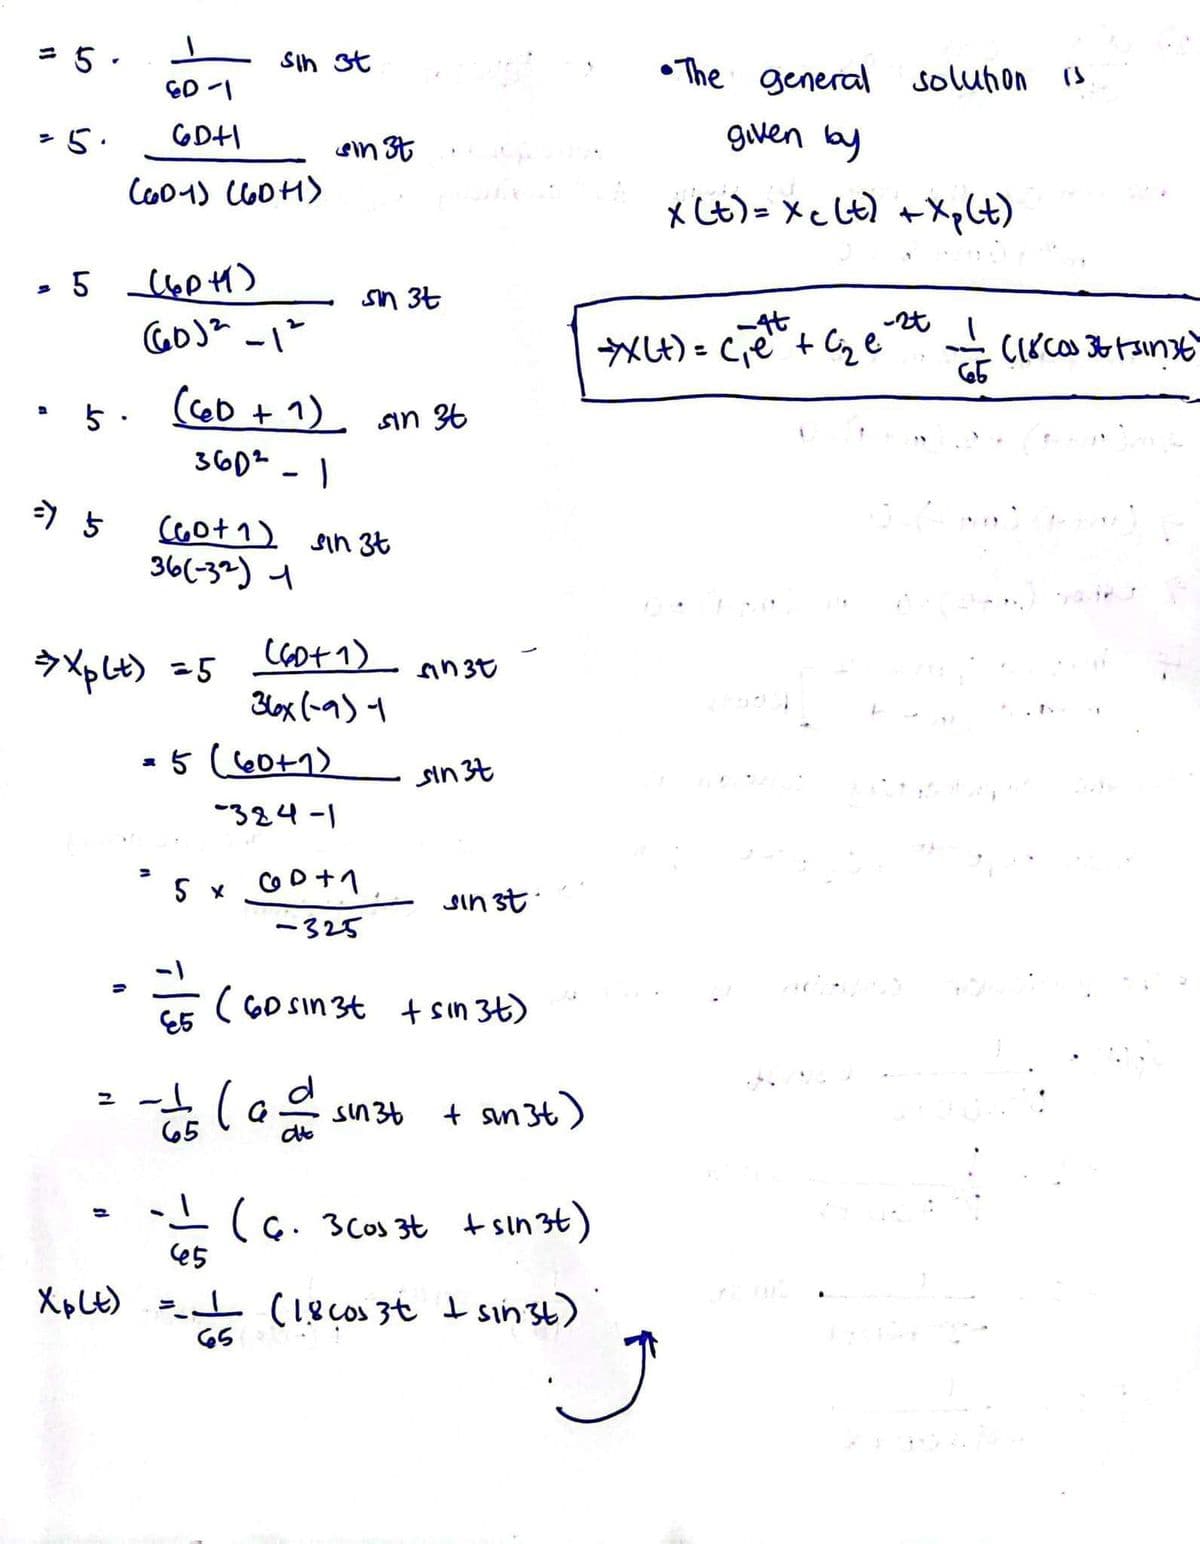 = 5 . 1/(6D-1) sin 3t
= 5 . (6D+1)/((6D-1) (6D+1)) sin 3t
= 5 (6D+1)/((6D)² - 1²) sin 3t
= 5 . (6D + 1)/(36D² - 1) sin 3t
=> 5 (6D+1)/(36(-3²) -1) sin 3t
=> Xp(t) = 5 (6D+1)/(36x(-9) -1) sin 3t
= 5 (6D+1)/(-324 -1) sin 3t
= 5 x (6D+1)/(-325) sin 3t
= -1/65 (6D sin 3t + sin 3t)
= -1/65 (6 d/dt sin 3t + sin 3t)
= -1/65 (6. 3cos 3t + sin 3t)
Xp(t) = -1/65 (18 cos 3t + sin 3t)
• The general solution is
given by
X(t) = Xc(t) + Xp(t)
=> X(t) = C₁e^-4t + C₂e^-2t - 1/65 (18 cos 3t + sin 3t)